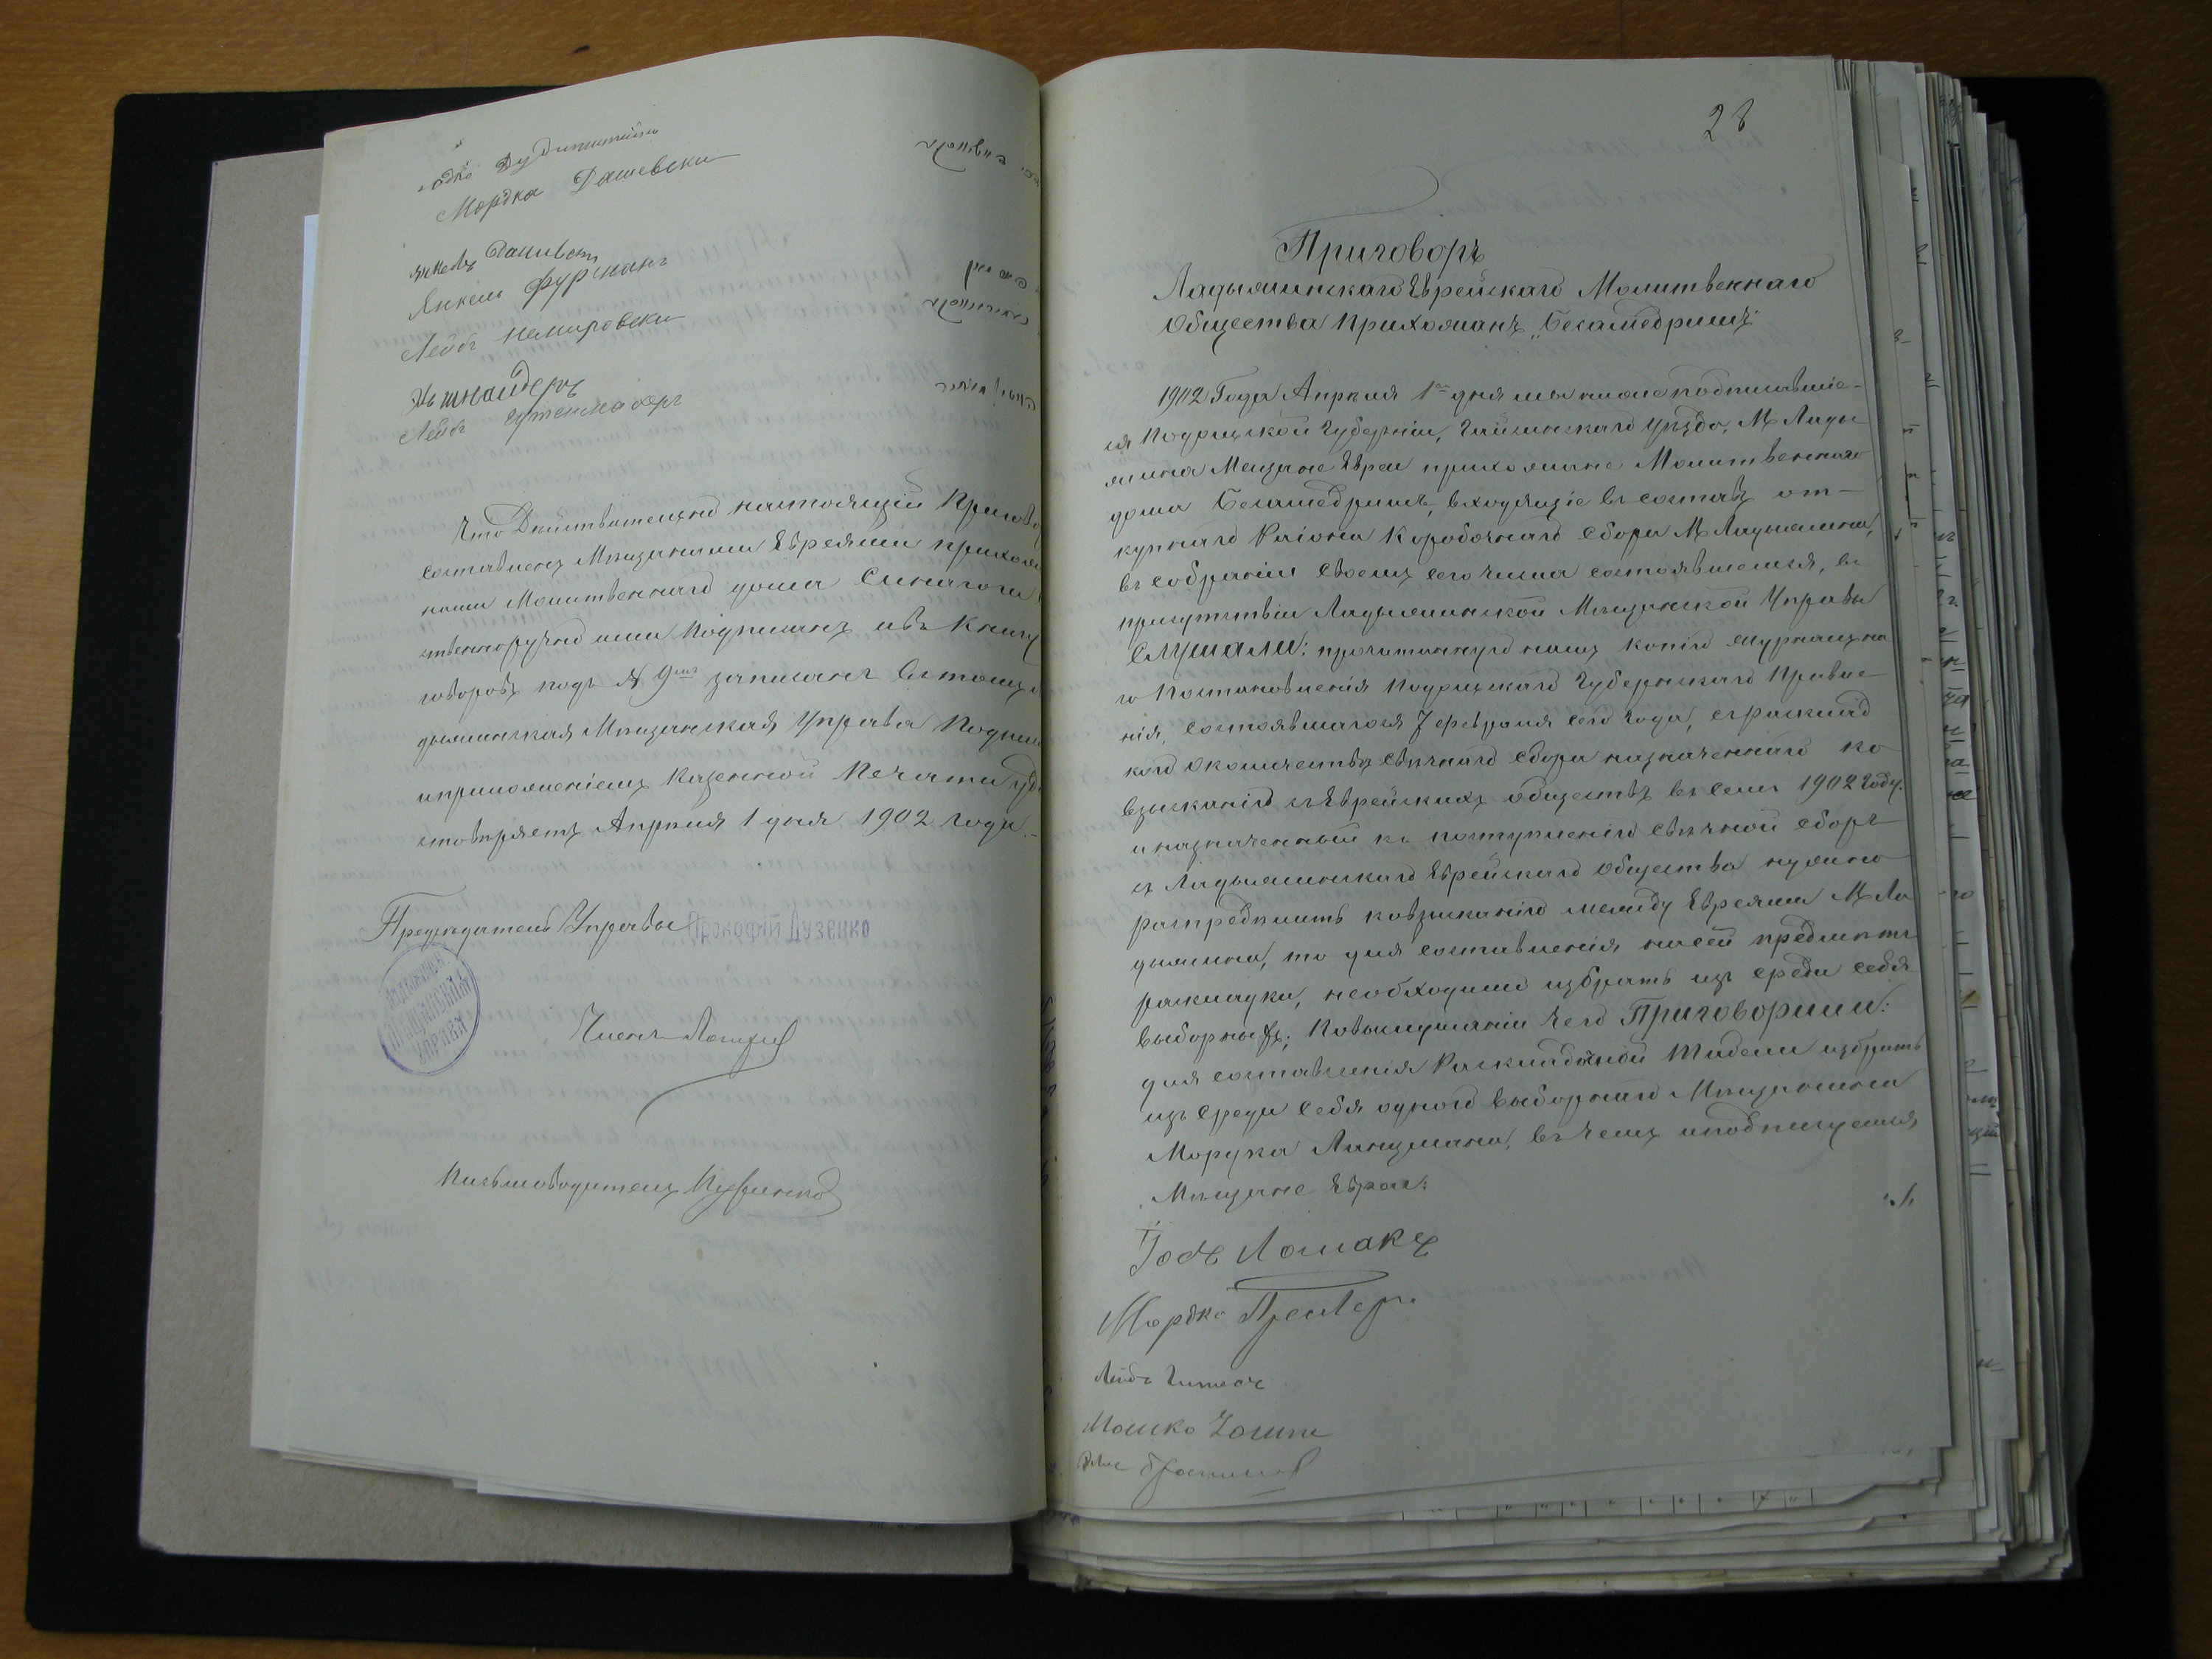 Мордка Дашевски
Янкель Фурманъ
Лейбъ Немировски
Шнайдеръ
Лейбъ Гутенмахеръ
Что Дѣйствительно настоящій Пригово
составленъ Мѣщанами Евреями прихожа
нами Молитвеннаго дома Синагоги
ственноручно ими Подписанъ и въ Книгу
говоровъ подъ № 9мъ записанъ въ томъ
дыжинская Мѣщанская Управа Подпис
и приложеніемъ Казенной Печати удо
стовѣряетъ Апрѣля 1 дня 1902 года.
Предсѣдатель Управы Прокофій Дузенко
Ладыжинск.
Мѣщанская
Управа
Членъ
Письмоводитель
28
Приговоръ
Ладыжинскаго Еврейскаго Молитвеннаго
Общества Прихожанъ „Бесамедришъ"
1902 Года Апрѣля 1го дня мы нижеподписавшіе-
ся Подольской Губерніи, Гайсинскаго Уѣзда, М. Лады
жина Мещане Евреи прихожане Молитвеннаго
дома Бесамедришъ, входящіе въ составъ от-
купнаго Раіона Коробочнаго Сбора М. Ладыжина,
въ собраніи своемъ сего числа состоявшемся, въ
присутствіи Ладыжинской Мѣщанской Управы
Слушали: прочитанную намъ копію журнально
го Постановленія Подольскаго Губернскаго Правле-
нія, состоявшагося 7 февраля сего года, съ расклад
кою о количествѣ свѣчнаго сбора назначеннаго ко
взысканію съ Еврейскихъ обществъ въ семъ 1902 году.
и назначенный къ поступленію свѣчной сборъ
съ Ладыжинскаго Еврейскаго Общества нужно
распредѣлить ко взысканію между Евреями М. Ла
дыжина, то для составленія на сей предметъ
раскладки, необходимо избрать изъ среди себя
выборныхъ; По выслушаніи чего Приговорили:
для составленія Раскладочной Табели избрать
изъ среди себя одного выборнаго Мѣщанина
Мордка Ланцмана, въ чемъ и подписуемся
Мѣщане Евреи:
Мордко
Лейбъ
Мошко